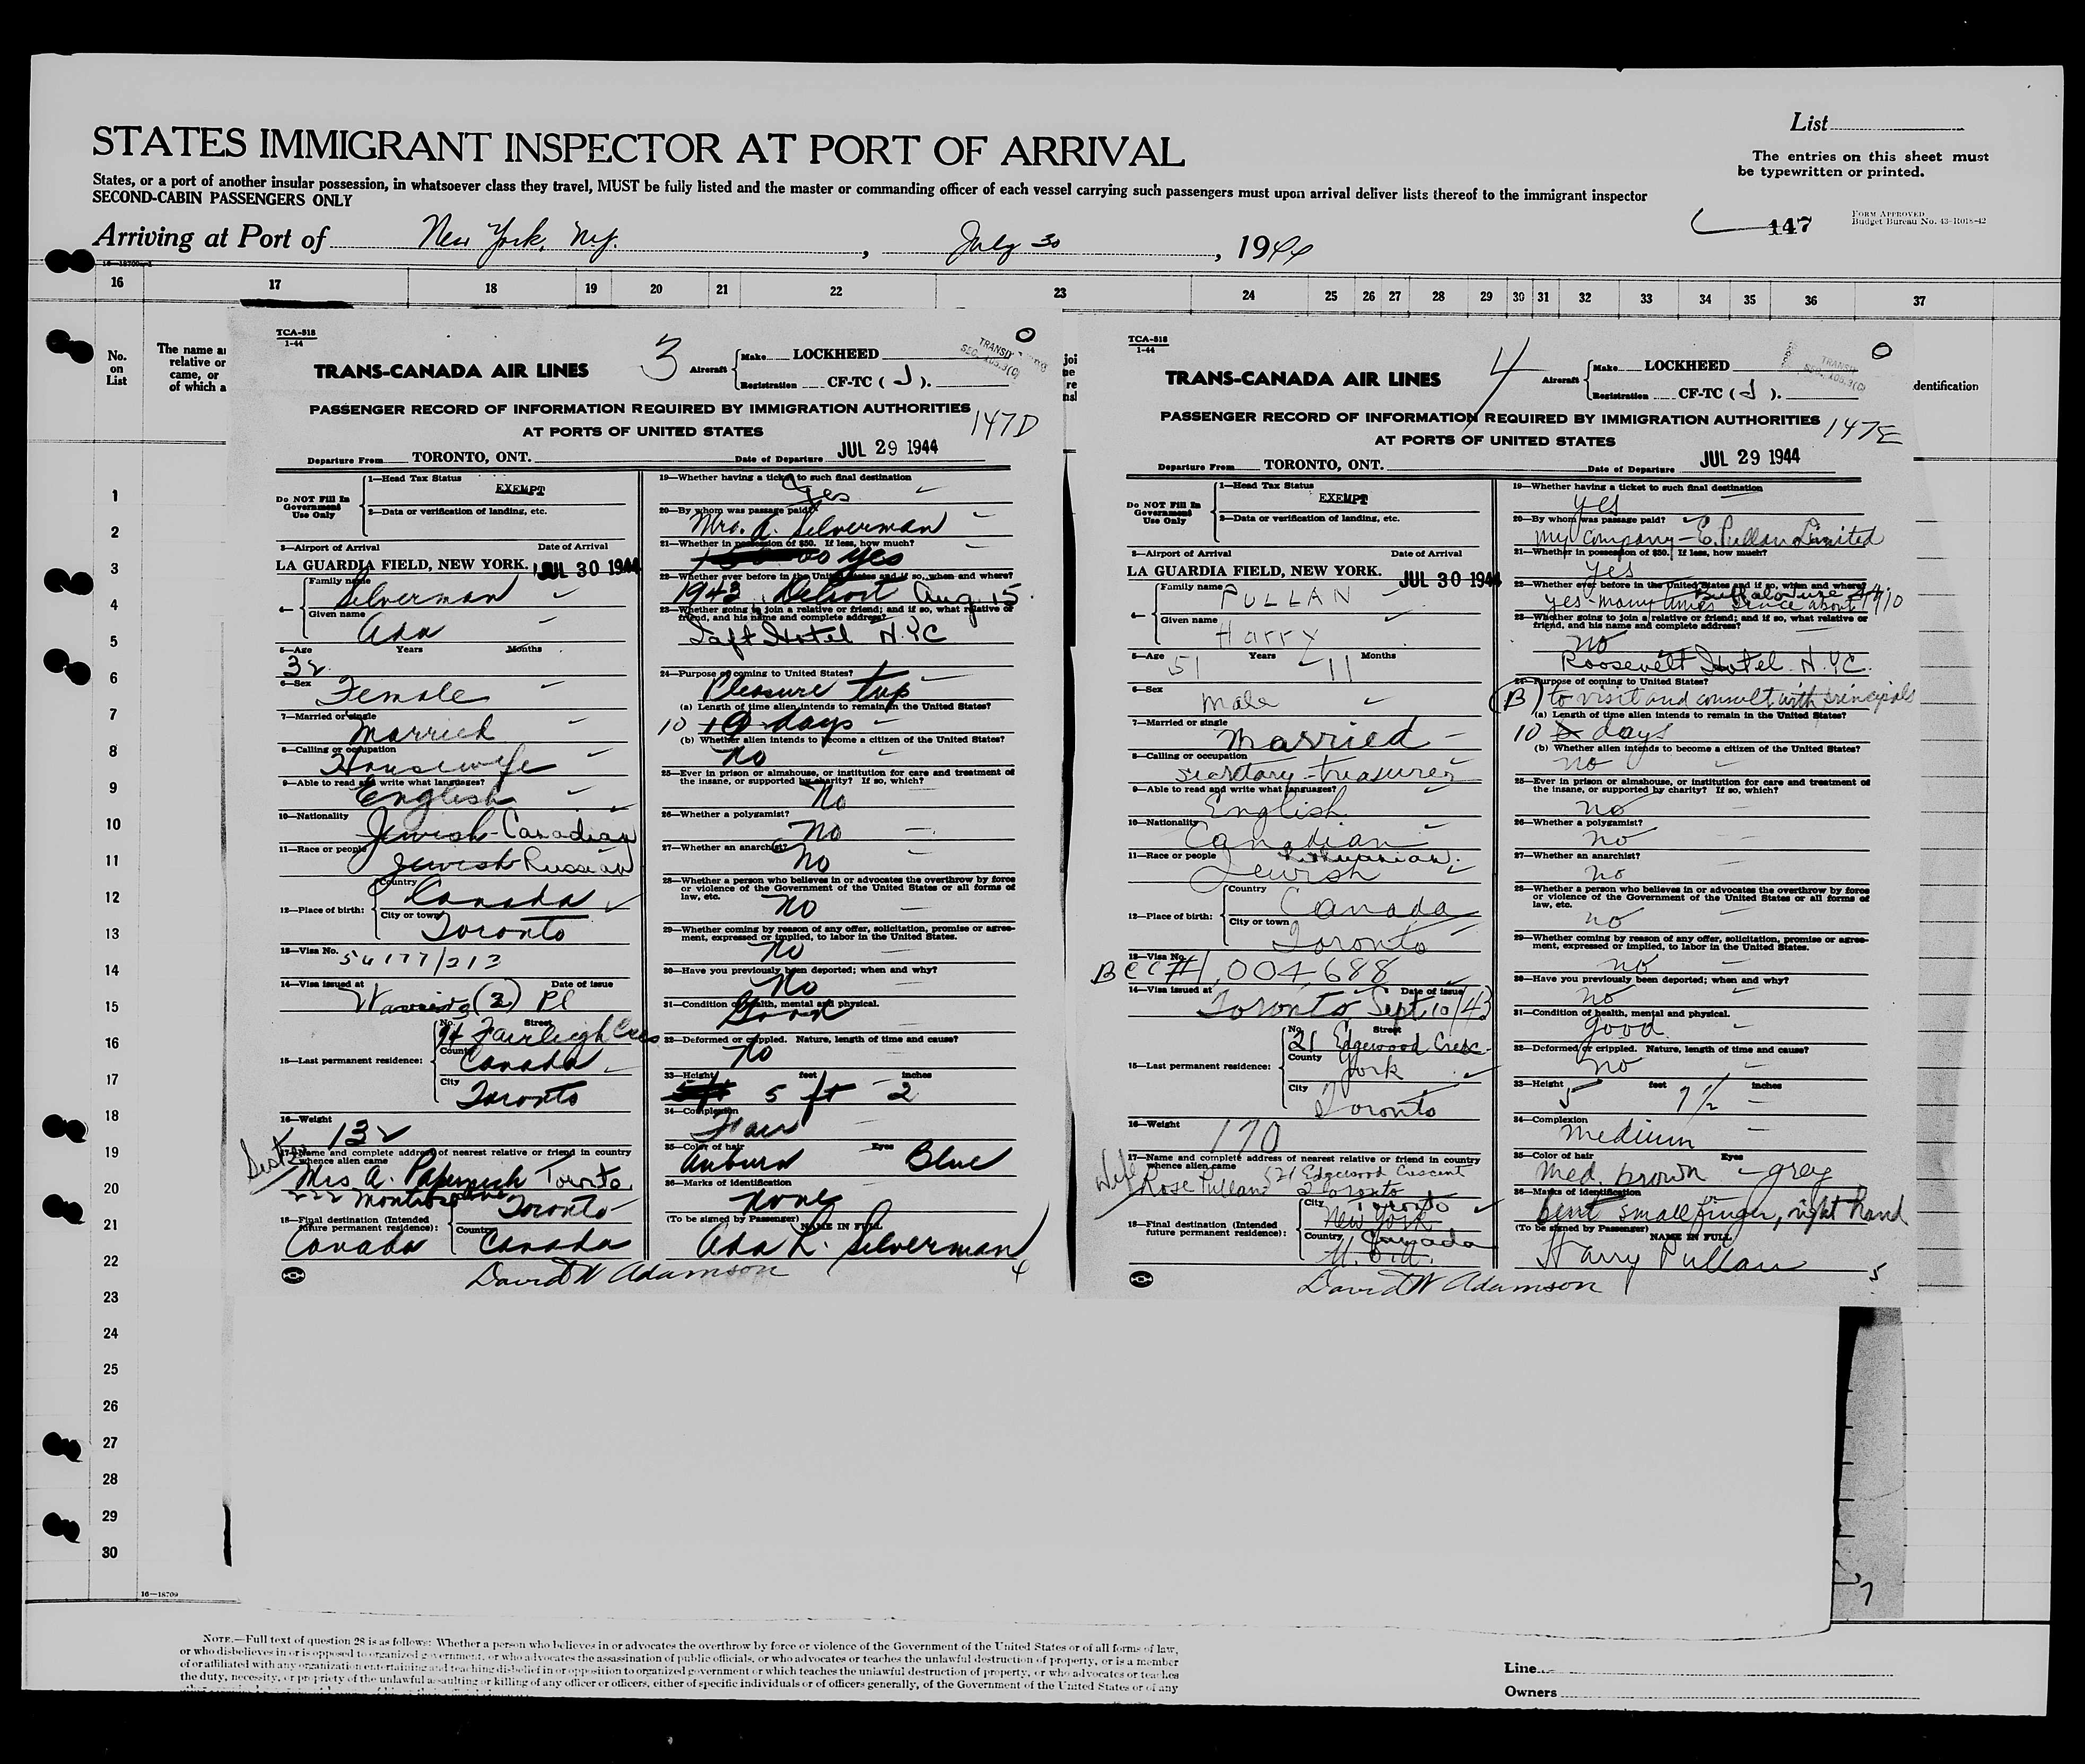 List
STATES IMMIGRANT INSPECTOR AT PORT OF ARRIVAL
The entries on this sheet must
be typewritten or printed.
States, or a port of another insular possession, in whatsoever class they travel, MUST be fully listed and the master or commanding officer of each vessel carrying such passengers must upon arrival deliver lists thereof to the immigrant inspector
SECOND-CABIN PASSENGERS ONLY
Form Approved
Budget Bureau No. 43-R018-42
147
Arriving at Port of New York, N.Y. , July 30 , 1944
16 17 18 19 20 21 22 23 24 25 26 27 28 29 30 31 32 33 34 35 36 37
No.
on
List
The name a
relative or
came, or
of which a
dentification
TCA-518
1-44
3
TRANS-CANADA AIR LINES
Aircraft
Make LOCKHEED
Registration CF-TC ( J ).
PASSENGER RECORD OF INFORMATION REQUIRED BY IMMIGRATION AUTHORITIES
AT PORTS OF UNITED STATES
147D
Departure From TORONTO, ONT. Date of Departure JUL 29 1944
Do NOT Fill In
Government
Use Only
1—Head Tax Status
EXEMPT
2—Data or verification of landing, etc.
3—Airport of Arrival Date of Arrival
LA GUARDIA FIELD, NEW YORK. JUL 30 1944
4—
Family name Silverman
Given name Ada
5—Age Years Months
32
6—Sex Female
7—Married or single
Married
8—Calling or occupation
Housewife
9—Able to read and write what languages?
English
10—Nationality
Jewish-Canadian
11—Race or people
Jewish Russian
12—Place of birth:
Country Canada
City or town Toronto
13—Visa No.
14—Visa issued at Date of issue
15—Last permanent residence:
No. Street
Fairleigh Cres
County Canada
City Toronto
16—Weight 132
17—Name and complete address of nearest relative or friend in country
whence alien came
Mrs A. Toronto
Toronto
18—Final destination (Intended
future permanent residence):
Canada
Country Canada
David W Adamson
19—Whether having a ticket to such final destination
Yes
20—By whom was passage paid?
Mrs. A. Silverman
21—Whether in possession of $50. If less, how much?
yes
22—Whether ever before in the United States and if so, when and where?
1943 Detroit Aug 15
23—Whether going to join a relative or friend; and if so, what relative or
friend, and his name and complete address?
Taft Hotel N.Y.C
24—Purpose of coming to United States?
Pleasure trip
(a) Length of time alien intends to remain in the United States?
10 10 days
(b) Whether alien intends to become a citizen of the United States?
No
25—Ever in prison or almshouse, or institution for care and treatment of
the insane, or supported by charity? If so, which?
No
26—Whether a polygamist?
No
27—Whether an anarchist?
No
28—Whether a person who believes in or advocates the overthrow by force
or violence of the Government of the United States or all forms of
law, etc.
No
29—Whether coming by reason of any offer, solicitation, promise or agree-
ment, expressed or implied, to labor in the United States.
No
30—Have you previously been deported; when and why?
No
31—Condition of health, mental and physical.
Good
32—Deformed or crippled. Nature, length of time and cause?
No
33—Height feet inches
5 ft 2
34—Complexion
Fair
35—Color of hair Eyes
Auburn Blue
36—Marks of identification
none
(To be signed by Passenger) NAME IN FULL
Ada L. Silverman
4
TCA-518
1-44
4
TRANS-CANADA AIR LINES
Aircraft
Make LOCKHEED
Registration CF-TC ( J ).
PASSENGER RECORD OF INFORMATION REQUIRED BY IMMIGRATION AUTHORITIES
AT PORTS OF UNITED STATES
147E
Departure From TORONTO, ONT. Date of Departure JUL 29 1944
Do NOT Fill In
Government
Use Only
1—Head Tax Status
EXEMPT
2—Data or verification of landing, etc.
3—Airport of Arrival Date of Arrival
LA GUARDIA FIELD, NEW YORK. JUL 30 1944
4—
Family name PULLAN
Given name Harry
5—Age Years Months
51 11
6—Sex
male
7—Married or single
Married
8—Calling or occupation
secretary-treasurer
9—Able to read and write what languages?
English
10—Nationality
Canadian
11—Race or people Lithuanian.
Jewish
12—Place of birth:
Country Canada
City or town Toronto
13—Visa No.
BCC # 1,004688
14—Visa issued at Date of issue
Toronto Sept 10/43
15—Last permanent residence:
No. Street
21 Edgewood Cresc.
County York
City Toronto
16—Weight 170
17—Name and complete address of nearest relative or friend in country
whence alien came
Wife Rose Pullan 21 Edgewood Crescent
Toronto
18—Final destination (Intended
future permanent residence):
City Toronto
New York
Country Canada
U.S.A.
David W Adamson
19—Whether having a ticket to such final destination
yes
20—By whom was passage paid?
my company—E. Pullan Limited
21—Whether in possession of $50. If less, how much?
yes
22—Whether ever before in the United States and if so, when and where?
Buffalo June 44
yes-many times since about 1910
23—Whether going to join a relative or friend; and if so, what relative or
friend, and his name and complete address?
no
Roosevelt Hotel. N.Y.C.
24—Purpose of coming to United States?
(B) to visit and consult with principals
(a) Length of time alien intends to remain in the United States?
10 days
(b) Whether alien intends to become a citizen of the United States?
no
25—Ever in prison or almshouse, or institution for care and treatment of
the insane, or supported by charity? If so, which?
no
26—Whether a polygamist?
no
27—Whether an anarchist?
no
28—Whether a person who believes in or advocates the overthrow by force
or violence of the Government of the United States or all forms of
law, etc.
no
29—Whether coming by reason of any offer, solicitation, promise or agree-
ment, expressed or implied, to labor in the United States.
no
30—Have you previously been deported; when and why?
no
31—Condition of health, mental and physical.
good
32—Deformed or crippled. Nature, length of time and cause?
no
33—Height feet inches
5 7 1/2
34—Complexion
medium
35—Color of hair Eyes
med. brown grey
36—Marks of identification
bent small finger, right hand
(To be signed by Passenger) NAME IN FULL
Harry Pullan
5
1
2
3
4
5
6
7
8
9
10
11
12
13
14
15
16
17
18
19
20
21
22
23
24
25
26
27
28
29
30
16—18709
Note.—Full text of question 28 is as follows: Whether a person who believes in or advocates the overthrow by force or violence of the Government of the United States or of all forms of law,
or who disbelieves in or is opposed to organized government, or who advocates the assassination of public officials, or who advocates or teaches the unlawful destruction of property, or is a member
of or affiliated with any organization entertaining and teaching disbelief in or opposition to organized government or which teaches the unlawful destruction of property, or who advocates or teaches
the duty, necessity, or propriety of the unlawful assaulting or killing of any officer or officers, either of specific individuals or of officers generally, of the Government of the United States or of any
Line
Owners